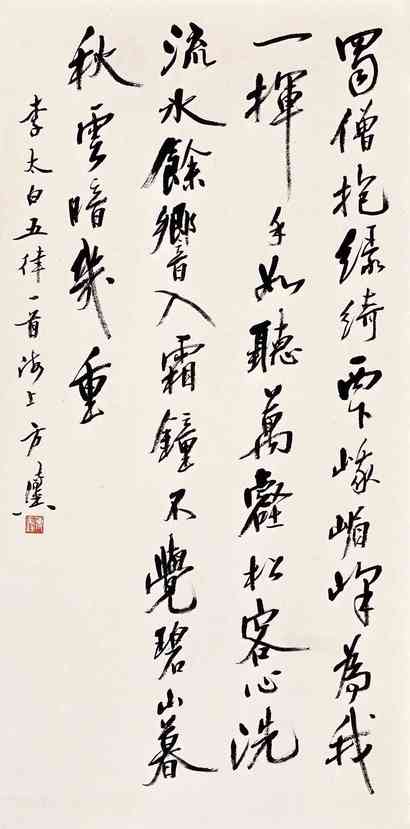 蜀僧抱綠綺西下峨嵋峰為我
一揮手如聽萬壑松客心洗
流水餘響入霜鐘不覺碧山暮
秋雲暗幾重
李太白五律一首海上方